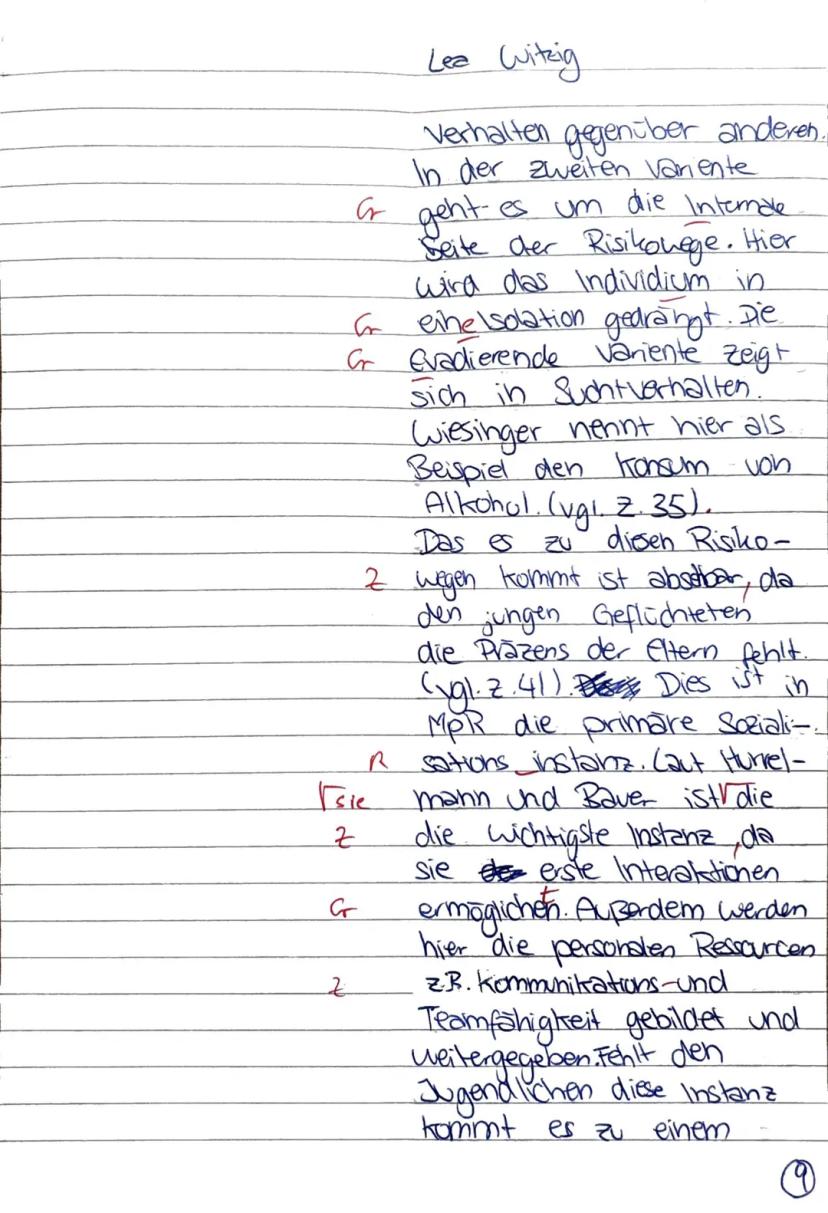 Lea Witzig
verhalten gegenüber anderen.
In der zweiten Variente
Gr geht es um die Internale
Seite der Risikowege. Hier
wird das Individium in
Gr eine Isolation gedrängt. Die
Gr evadierende Variente zeigt
sich in Suchtverhalten.
Wiesinger nennt hier als
Beispiel den Konsum von
Alkohol. (vgl. Z. 35).
Das es zu diesen Risiko-
Z wegen kommt ist absehbar, da
den jungen Geflüchteten
die Präzens der Eltern fehlt.
(vgl. Z. 41). Dies ist in
MpR die primäre Soziali-
R sations instanz. Laut Hurrel-
√sie mann und Bauer ist√ die
Z die wichtigste Instanz, da
sie erste Interaktionen
Gr ermöglichen. t Außerdem werden
hier die personalen Ressourcen
Z z.B. Kommunikations-und
Teamfähigkeit gebildet und
weitergegeben. Fehlt den
Jugendlichen diese Instanz
kommt es zu einem
9